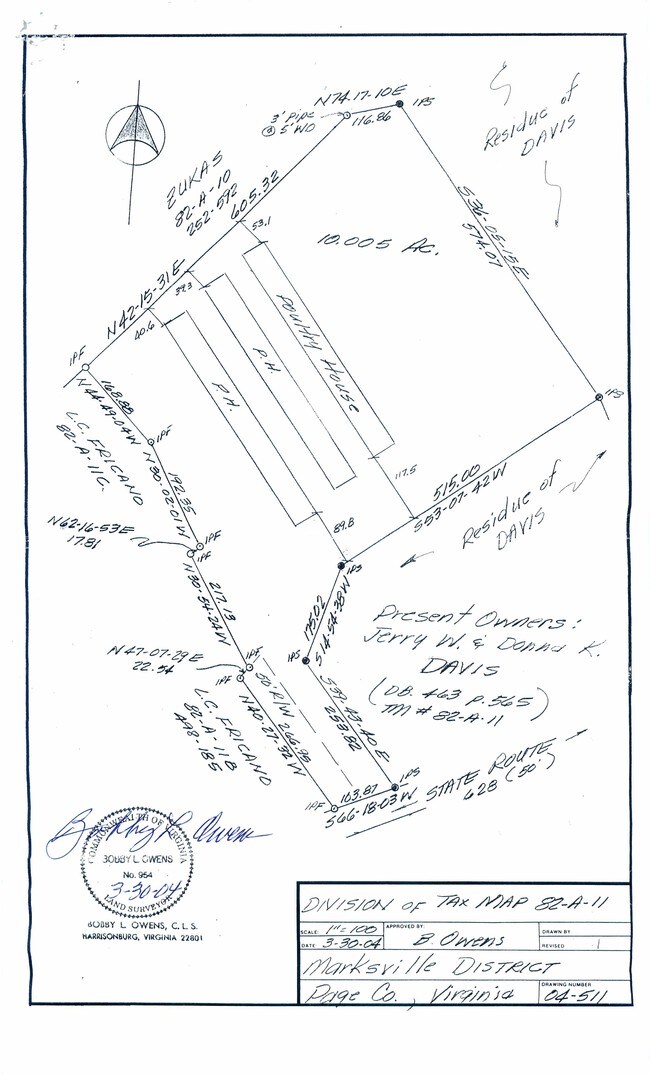 N74-17-10E
116.86
IPS
3' Pipe
@ 5' WO
Residue of
DAVIS
ZUKAS
82-A-10
252-592
605.32
N42-15-31E
53.1
39.3
40.6
10.005 Ac.
S36-05-15E
574.07
Poultry House
P.H.
P.H.
IPF
168.88
N44-49-04W
L.C. FRICANO
82-A-11C
IPF
192.35
N30-02-01W
IPS
117.5
515.00
S53-07-42W
Residue of
DAVIS
89.8
N62-16-53E
17.81
IPF
IPF
IPS
217.13
N30-54-24W
175.02
S14-54-38W
Present Owners:
Jerry W. & Donna K.
DAVIS
(DB. 463 P. 565)
TM # 82-A-11
N47-07-29E
22.54
IPF
IPF
IPS
50' R/W
266.95
N40-27-32W
L.C. FRICANO
82-A-11B
498-185
S39-43-40E
253.82
IPS
163.87
S66-18-03W
IPF
STATE ROUTE
628 (50')
Bobby L. Owens
COMMONWEALTH OF VIRGINIA
BOBBY L. OWENS
No. 954
3-30-04
LAND SURVEYOR
BOBBY L. OWENS, C.L.S.
HARRISONBURG, VIRGINIA 22801
DIVISION OF TAX MAP 82-A-11
SCALE: 1"=100
APPROVED BY:
DRAWN BY
DATE: 3-30-04
B. Owens
REVISED 1
Marksville DISTRICT
Page Co., Virginia
DRAWING NUMBER
04-511